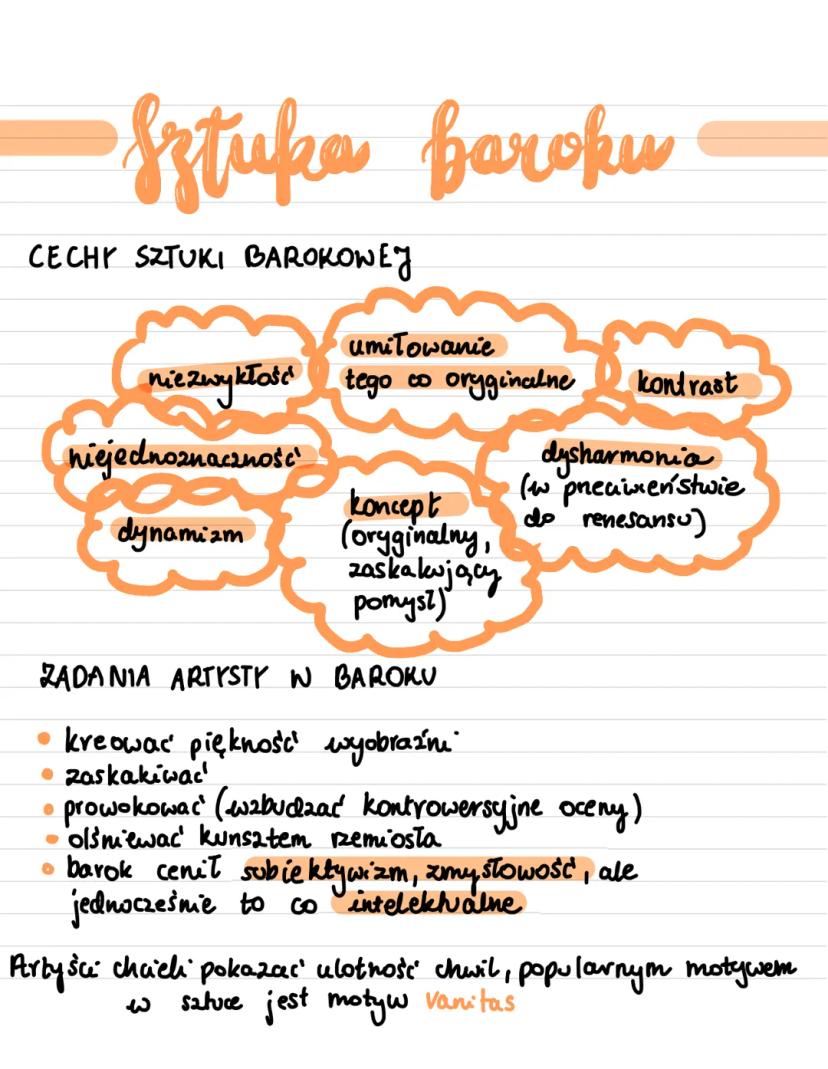 Sztuka baroku
CECHY SZTUKI BAROKOWEJ
niezwykłość
umiłowanie
tego co oryginalne
kontrast
niejednoznaczność
dysharmonia
(w przeciwieństwie
do renesansu)
dynamizm
koncept
(oryginalny,
zaskakujący
pomysł)
ZADANIA ARTYSTY W BAROKU
• kreować piękność wyobraźni
• zaskakiwać
• prowokować (wzbudzać kontrowersyjne oceny)
• olśniewać kunsztem rzemiosła
• barok cenił subiektywizm, zmysłowość, ale
jednocześnie to co intelektualne
Artyści chcieli pokazać ulotność chwil, popularnym motywem
w sztuce jest motyw vanitas